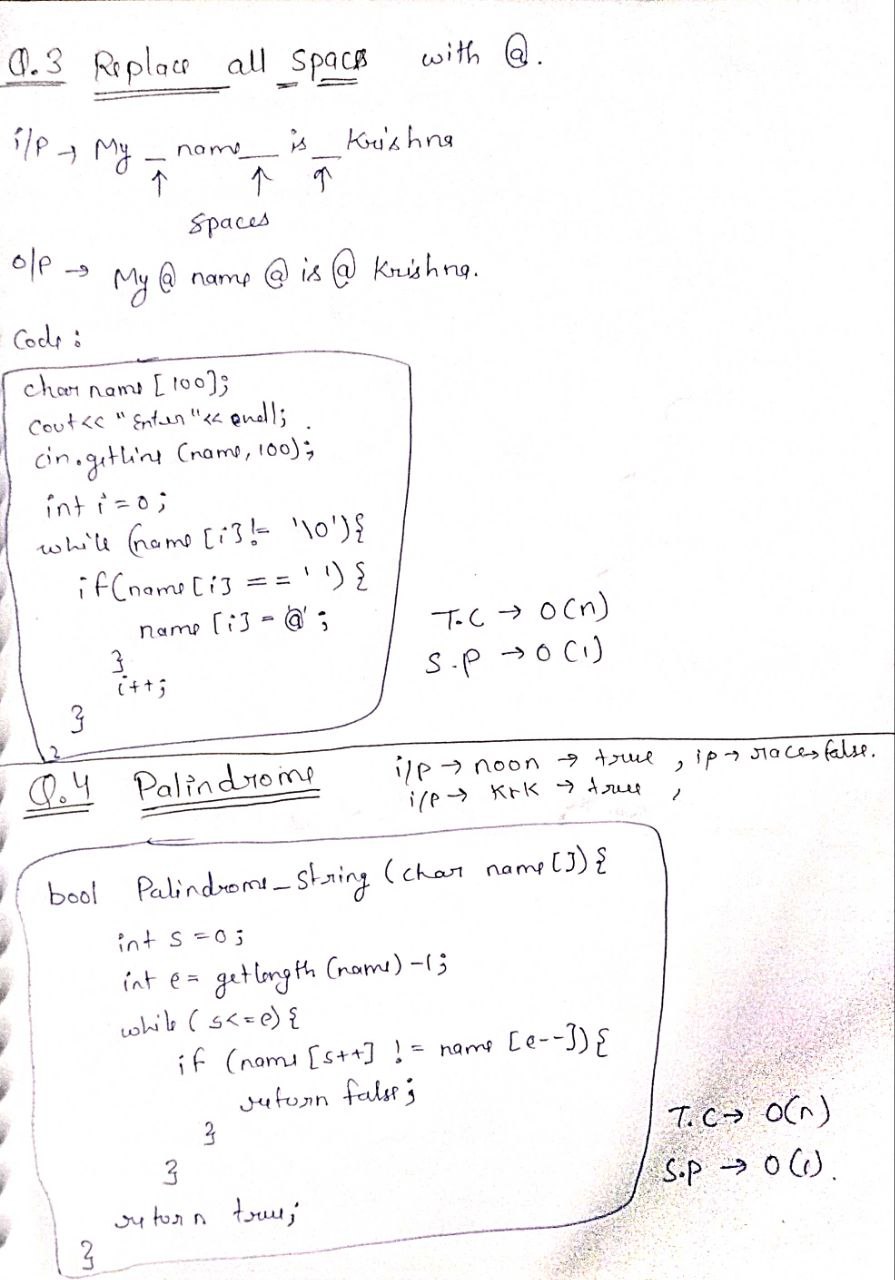 Q.3 Replace all spaces with @.
i/p → My _ name _ is _ Krishna
↑ ↑ ↑
spaces
o/p → My @ name @ is @ Krishna.
Code :
char name [100];
cout<< "Enter"<< endl;
cin.getline (name, 100);
int i=0;
while (name [i] != '\0'){
if(name[i] == ' ') {
name [i] = '@' ;
}
i++;
}
T.C → O(n)
S.P → O(1)
Q.4 Palindrome
i/p → noon → true , ip → race → false.
i/p → KrK → true ,
bool Palindrome_string (char name []) {
int s =0;
int e = getlength (name) -1;
while ( s<=e) {
if (name [s++] != name [e--]) {
return false;
}
}
return true;
}
T.C → O(n)
S.P → O(1).